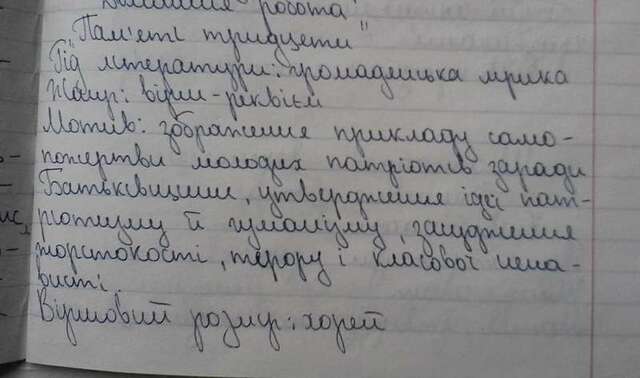 Домашня робота
"Пам'яті тридцяти"
Рід літератури: громадянська лірика
Жанр: вірш-реквієм
Мотив: зображення прикладу само-
пожертви молодих патріотів заради
Батьківщини, утвердження ідеї пат-
ріотизму й гуманізму, засудження
жорстокості, терору і класової нена-
висті.
Віршовий розмір: хорей